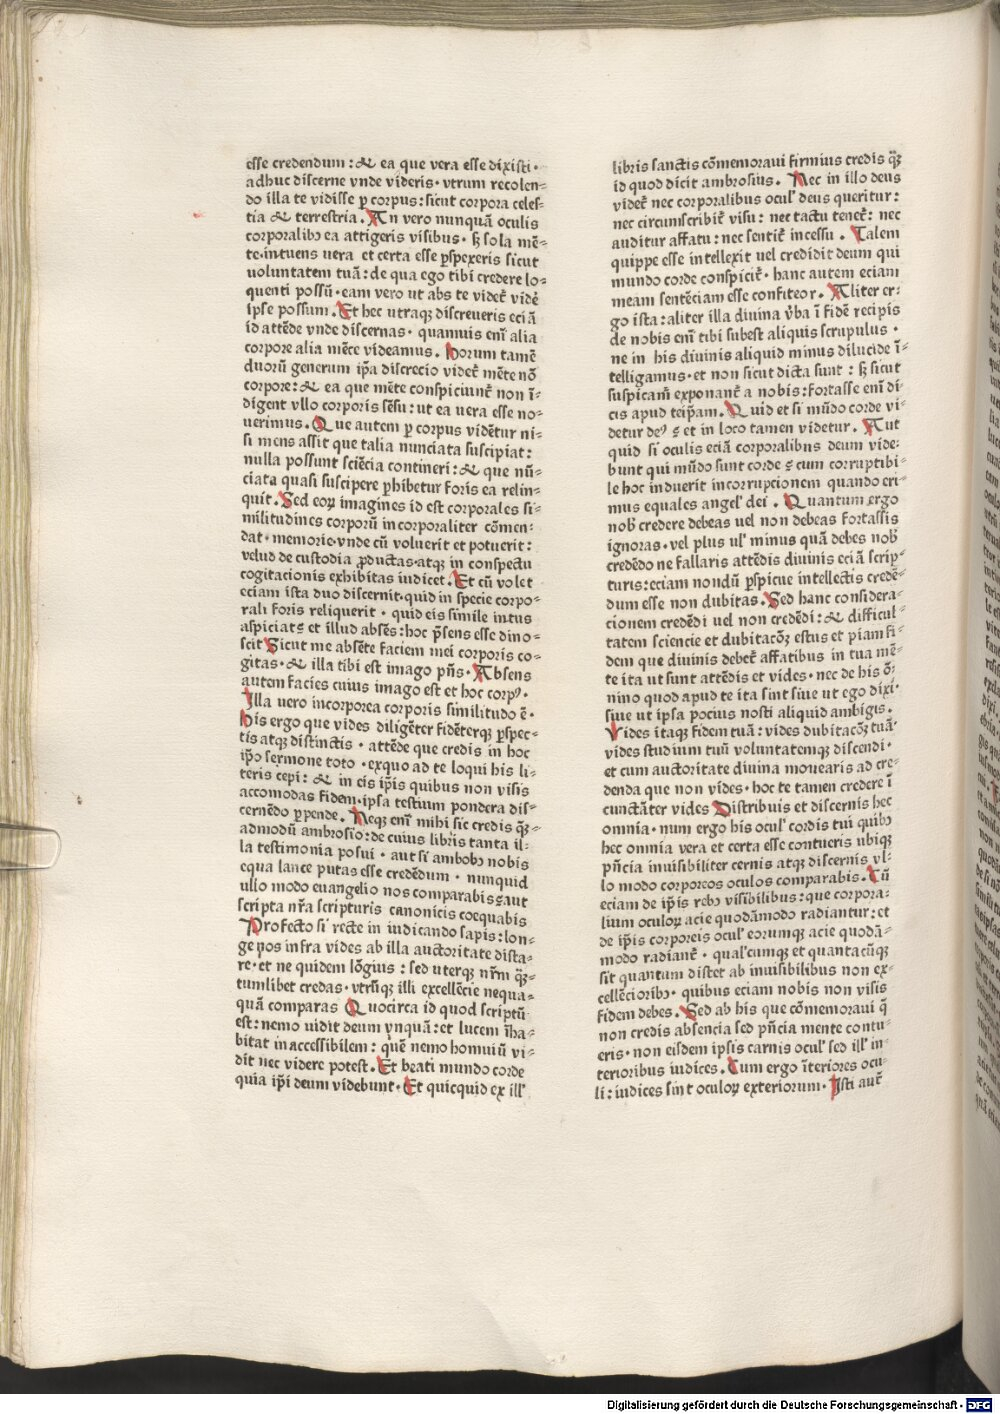 esse credendum : & ea que vera esse dixisti ·
adhuc discerne vnde videris · vtrum recolen⸗
do illa te vidisse ꝑ corpus : sicut corpora celes⸗
tia & terrestria . An vero nunquā oculis
corporalibꝫ ea attigeris visibus · sꝫ sola mē⸗
te · intuens uera et certa esse ꝑspexeris sicut
voluntatem tuā : de qua ego tibi credere lo⸗
quenti possū · eam vero ut abs te videt᷑ videˀ
ipse possum . Et hec utraqꝫ discreueris eciā
id attēde vnde discernas · quamuis eni᷑ alia
corpore alia mēte videamus . Horum tamē
duorū generum ip̄a discrecio videt᷑ mēte nō
corpore : & ea que mēte conspiciunt᷑ non ī⸗
digent vllo corporis sēsu : ut ea uera esse no⸗
uerimus . Que autem ꝑ corpus vidētur ni⸗
si mens assit que talia nunciata suscipiat :
nulla possunt sciēcia contineri : & que nū⸗
ciata quasi suscipere ꝑhibetur foris ea relin⸗
quit . Sed eoꝝ imagines id est corporales si⸗
militudines corporū incorporaliter cōmen⸗
dat · memorie · vnde cū voluerit et potuerit :
velud de custodia ꝓductas · atqꝫ in conspectu
cogitacionis exhibitas iudicet . Et cū volet
eciam ista duo discernit · quid in specie corpo⸗
rali foris reliquerit · quid eis simile intus
aspiciat ⁊ et illud absēs : hoc p̄sens esse dino⸗
scit Sicut me absēte faciem mei corporis co⸗
gitas · & illa tibi est imago pn̄s · Absens
autem facies cuius imago est et hoc corpꝰ ·
Illa uero incorporea corporis similitudo ē ·
His ergo que vides diligēter fidēterqꝫ ꝑspec⸗
tis atqꝫ distinctis · attēde que credis in hoc
ip̄o sermone toto · exquo ad te loqui his li⸗
teris cepi : & in eis ip̄is quibus non visis
accomodas fidem · ipsa testium pondera dis⸗
cernēdo ꝑpende . Neqꝫ eni᷑ mihi sic credis qꝫ̄⸗
admodū ambrosio : de cuius libris tanta il⸗
la testimonia posui · aut si ambobꝫ nobis
equa lance putas esse credēdum · nunquid
ullo modo euangelio nos comparabis ⁊ aut
scripta nr̄a scripturis canonicis coequabis
Profecto si recte in iudicando sapis : lon⸗
ge nos infra vides ab illa auctoritate dista⸗
re · et ne quidem lōgius : sed uterqꝫ nr̄m qꝫ̄⸗
tumlibet credas · vtrūqꝫ illi excellēcie nequa⸗
quā comparas Quocirca id quod scriptū
est : nemo uidit deum vnquā : et lucem īha⸗
bitat inaccessibilem : quē nemo homuiū vi⸗
dit nec videre potest . Et beati mundo corde
quia ip̄i deum videbunt · Et quicquid ex ill᷑
libris sanctis cōmemoraui firmius credis qꝫ̄
id quod dicit ambrosius . Nec in illo deus
videt᷑ nec corporalibus ocul᷑ deus queritur :
nec circumscribit᷑ visu : nec tactu tenet᷑ : nec
auditur affatu : nec sentit᷑ incessu . Talem
quippe esse intellexit uel credidit deum qui
mundo corde conspicit᷑ · hanc autem eciam
meam sentēciam esse confiteor . Aliter er⸗
go ista : aliter illa diuina v̓ba ī fidē recipis
de nobis eni᷑ tibi subest aliquis scrupulus ·
ne in his diuinis aliquid minus dilucide ī⸗
telligamus · et non sicut dicta sunt : sꝫ sicut
suspicam᷑ exponant᷑ a nobis : fortasse eni᷑ di⸗
cis apud teip̄am . Quid et si mūdo corde vi⸗
detur deꝰ ⁊ et in loco tamen videtur . Aut
quid si oculis eciā corporalibus deum vide⸗
bunt qui mūdo sunt corde ⁊ cum corruptibi⸗
le hoc induerit incorrupcionem quando eri⸗
mus equales angel᷑ dei . Quantum ergo
nob᷑ credere debeas uel non debeas fortassis
ignoras · vel plus ul᷑ minus quā debes nob᷑
credēdo ne fallaris attēdis diuinis eciā scrip⸗
turis : eciam nondū ꝑspicue intellectis credē⸗
dum esse non dubitas . Sed hanc considera⸗
cionem credēdi uel non credēdi : & difficul⸗
tatem sciencie et dubitacōꝫ estus et piam fi⸗
dem que diuinis debet᷑ affatibus in tua mē⸗
te ita ut sunt attēdis et vides · nec de his ō⸗
nino quod apud te ita sint siue ut ego dixi ·
siue ut ipsa pocius nosti aliquid ambigis .
Vides itaqꝫ fidem tuā : vides dubitacōꝫ tuā ·
vides studium tuū voluntatemqꝫ discendi ·
et cum auctoritate diuina mouearis ad cre⸗
denda que non vides · hoc te tamen credere ī
cunctāter vides Distribuis et discernis hec
omnia · num ergo his ocul᷑ cordis tui quibꝫ
hec omnia vera et certa esse contueris ubiqꝫ
pn̄cia inuisibiliter cernis atqꝫ discernis vl⸗
lo modo corporeos oculos comparabis . Cū
eciam de ip̄is rebꝫ visibilibus : que corpora⸗
lium oculoꝝ acie quodāmodo radiantur : et
de ip̄is corporeis ocul᷑ eorumqꝫ acie quodā⸗
modo radiant᷑ · qual᷑cumqꝫ et quantacūqꝫ
sit quantum distet ab inuisibilibus non ex⸗
cellēcioribꝫ · quibus eciam nobis non visis
fidem debes . Sed ab his que cōmemoraui q̄
non credis absencia sed pn̄cia mente contu⸗
eris · non eisdem ipsis carnis ocul᷑ sed ill᷑ in⸗
terioribus iudices . Cum ergo īteriores ocu⸗
li : iudices sint oculoꝝ exteriorum · Isti aut᷑
Digitalisierung gefördert durch die Deutsche Forschungsgemeinschaft - DFG